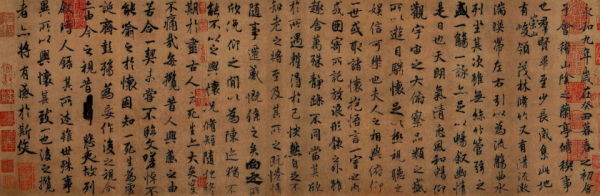 九年歲在癸丑暮春之初會
于會稽山陰之蘭亭脩稧事
也羣賢畢至少長咸集此地
有崇山峻領茂林脩竹又有清流激
湍暎帶左右引以為流觴曲水
列坐其次雖無絲竹管弦之
盛一觴一詠亦足以暢敘幽情
是日也天朗氣清惠風和暢仰
觀宇宙之大俯察品類之盛
所以遊目騁懷足以極視聽之
娛信可樂也夫人之相與俯仰
一世或取諸懷抱悟言一室之內
或因寄所託放浪形骸之外雖
趣舍萬殊靜躁不同當其欣
於所遇蹔得於己怏然自足不
知老之將至及其所之既惓情
隨事遷感慨係之矣向之所
欣俛仰之閒以為陳迹猶不
能不以之興懷況脩短隨化終
期於盡古人云死生亦大矣豈
不痛哉每攬昔人興感之由
若合一契未嘗不臨文嗟悼不
能喻之於懷固知一死生為虛
誕齊彭殤為妄作後之視今
亦由今之視昔悲夫故列
敘時人錄其所述雖世殊事
異所以興懷其致一也後之攬
者亦將有感於斯文